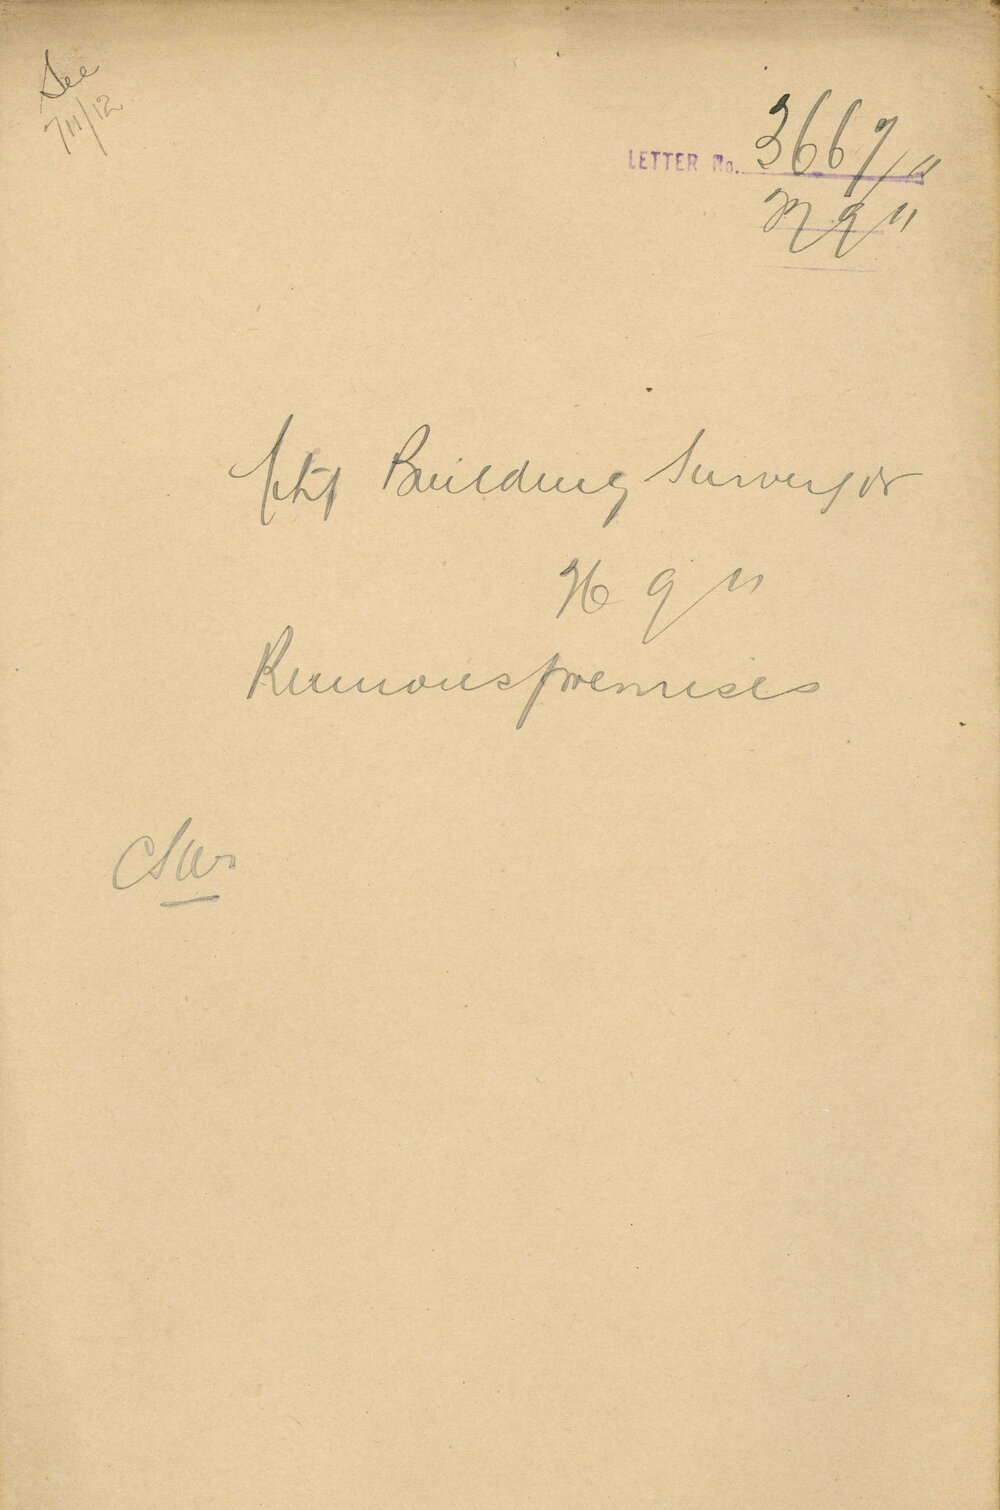 See
711/12
LETTER No. 3667/11
27 9 11
City Building Surveyor
26 9 11
Ruinous premises